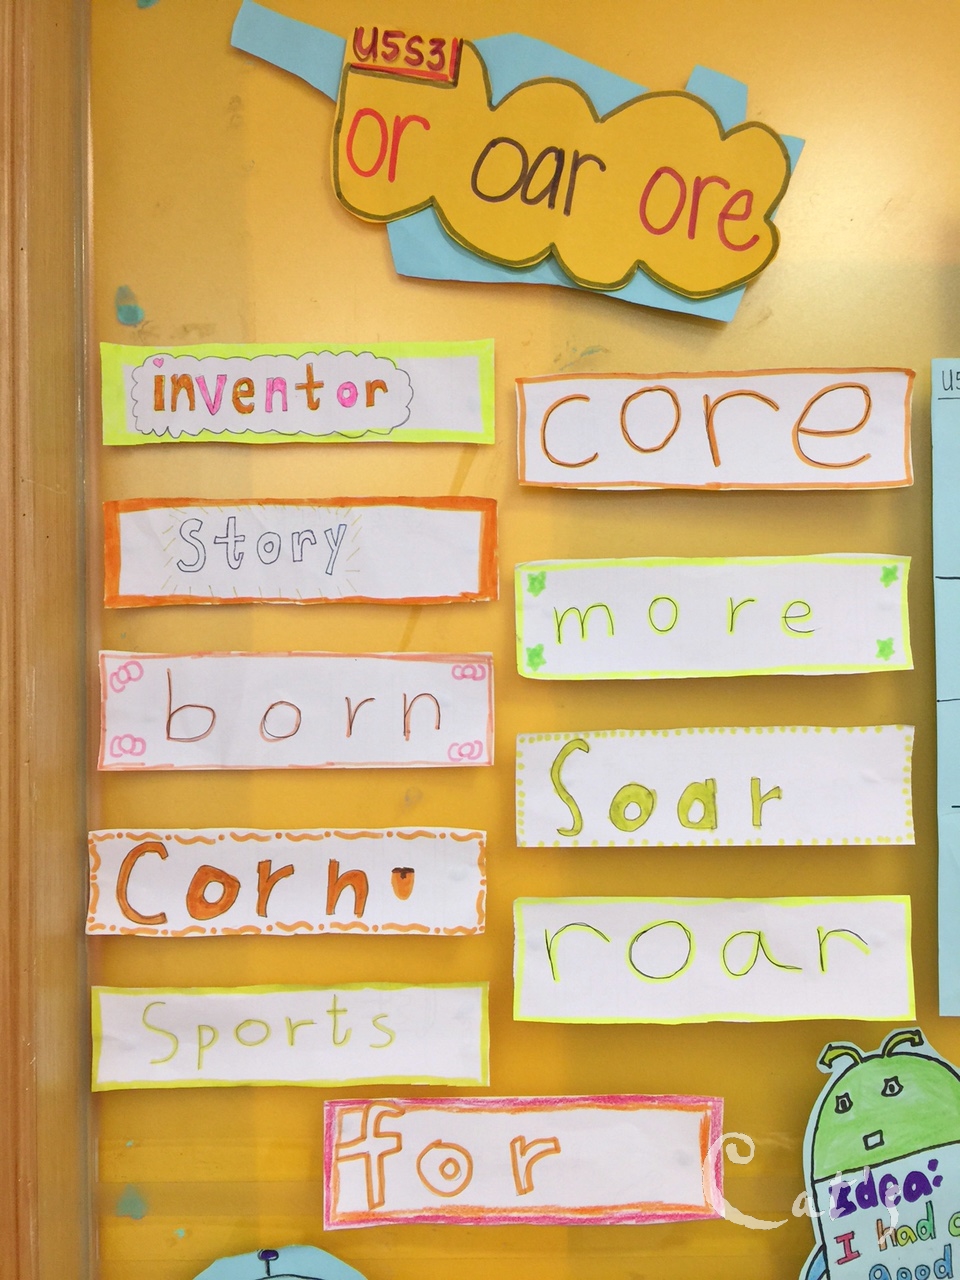 U5S3
or oar ore
inventor
Story
born
Corn
Sports
core
more
Soar
roar
for
U5
Idea:
I had a
good
Cat's